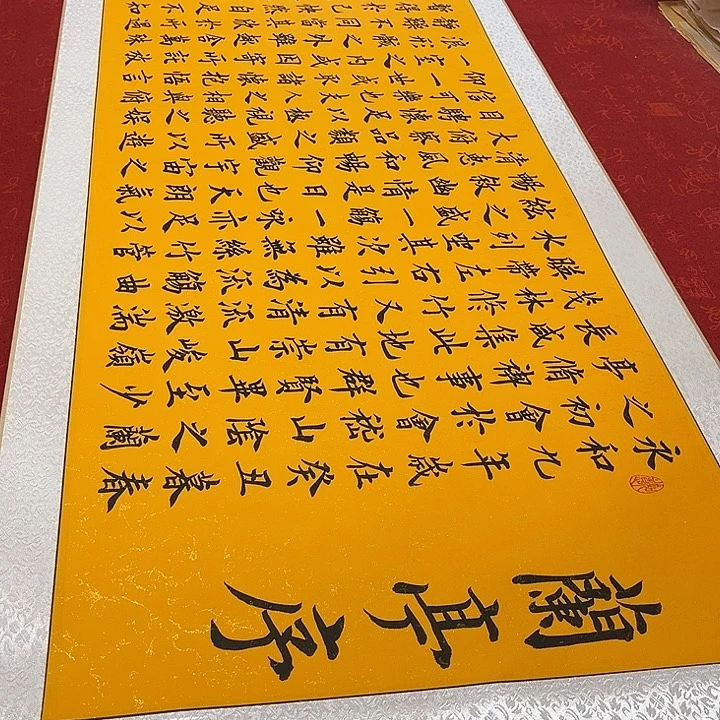 蘭亭序
永和九年歲在癸丑暮春
之初會於會稽山陰之蘭
亭脩禊事也群賢畢至少
長咸集此地有崇山峻嶺
茂林脩竹又有清流激湍
暎帶左右引以為流觴曲
水列坐其次雖無絲竹管
絃之盛一觴一詠亦足以
暢敘幽情是日也天朗氣
清惠風和暢仰觀宇宙之
大俯察品類之盛所以遊
目騁懷足以極視聽之娛
信可樂也夫人之相與俯
仰一世或取諸懷抱悟言
一室之內或因寄所託
浪形骸之外雖趣舍萬殊
靜躁不同當其欣於所
暫得於己快然自足不知